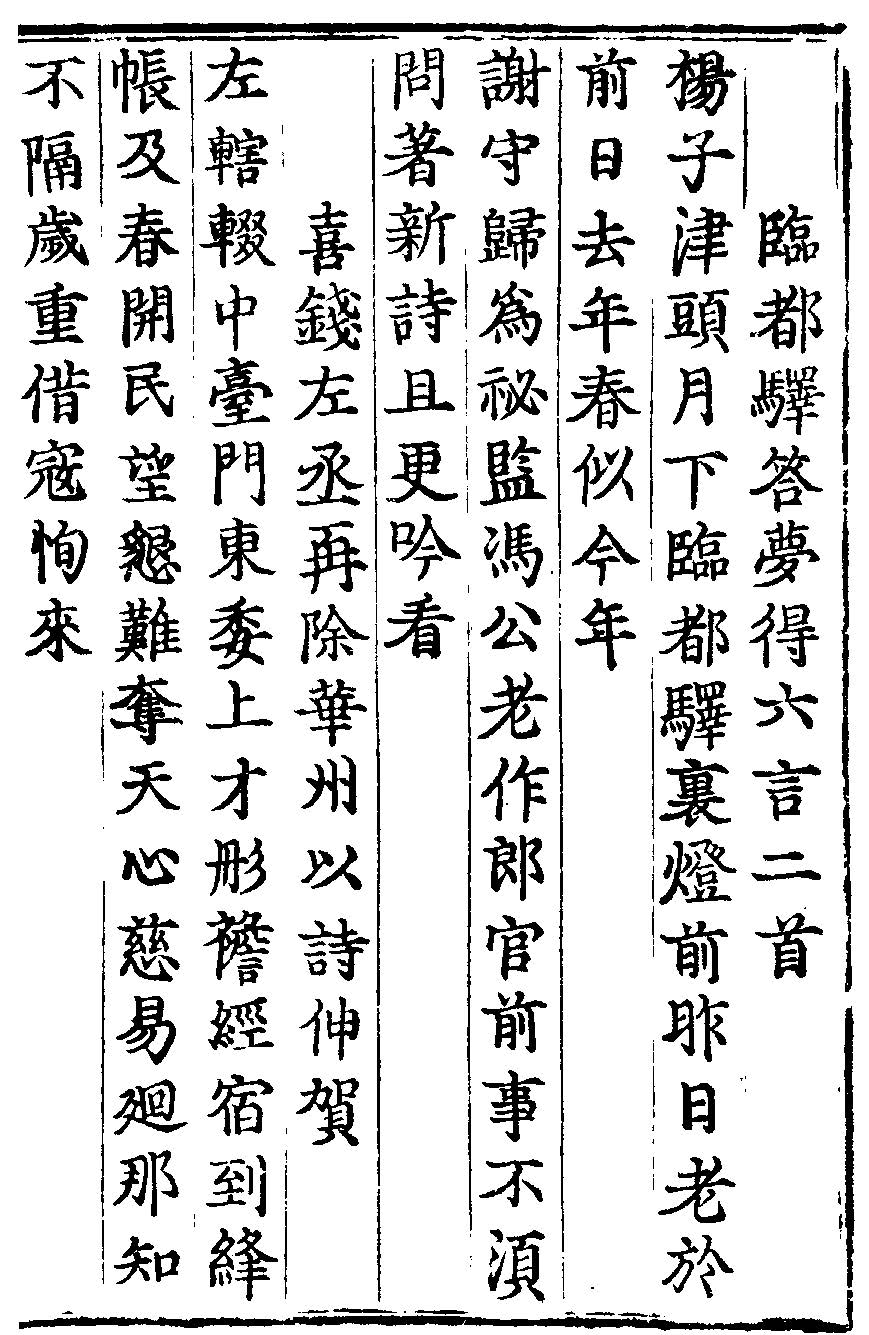 臨都驛答夢得六言二首
楊子津頭月下臨都驛裏燈前昨日老於
前日去年春似今年
謝守歸爲祕監馮公老作郎官前事不須
問著新詩且更吟看
喜錢左丞再除華州以詩伸賀
左轄輟中臺門東委上才彤襜經宿到絳
帳及春開民望懇難奪天心慈易廻那知
不隔歲重借寇恂來